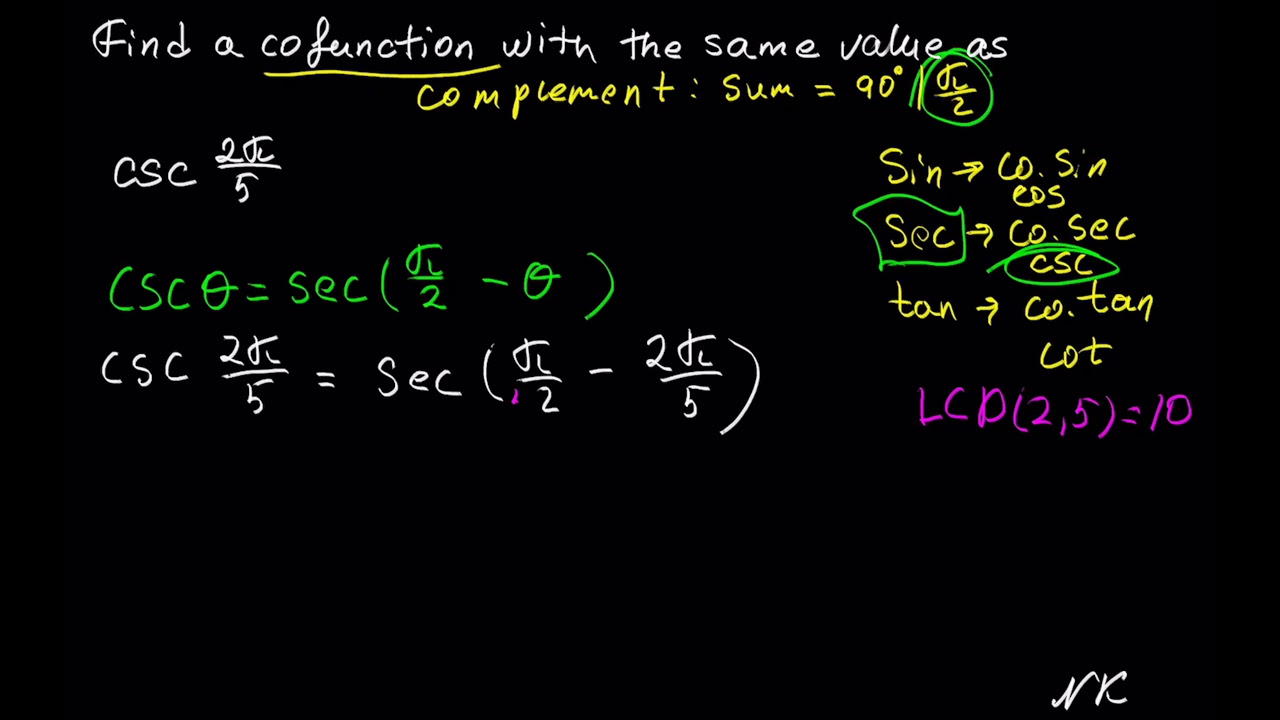 Find a cofunction with the same value as
complement: sum = 90° | π/2
csc 2π/5
Sin → co.sin
cos
Sec → co.sec
csc
tan → co.tan
cot
cscθ = sec(π/2 - θ)
csc 2π/5 = sec(π/2 - 2π/5)
LCD(2,5)=10
NK